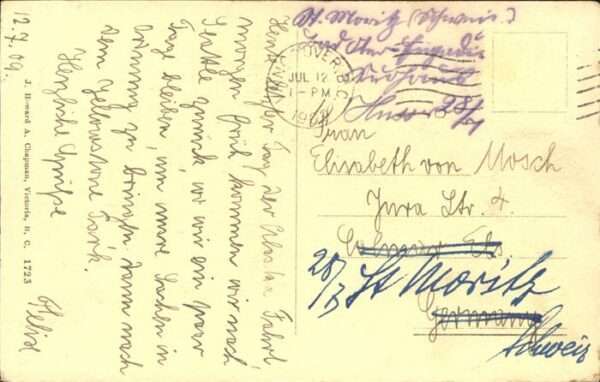 12.7.09.
Heute letzter Tag der Alaska Fahrt,
morgen früh kommen wir nach
Seattle zurück, wo wir ein paar
Tage bleiben, um unsere Sachen in
Ordnung zu bringen dann nach
dem Yellowstone Park.
Herzliche Grüße
Felix
J. Howard A. Chapman, Victoria, B. C. 1723
St. Moritz (Schweiz.)
JUL 12
1-PM
Frau
Elisabeth von Mosch
Jura Str. 4.
Colmar Els
28/7 St Moritz
Germany
Schweiz